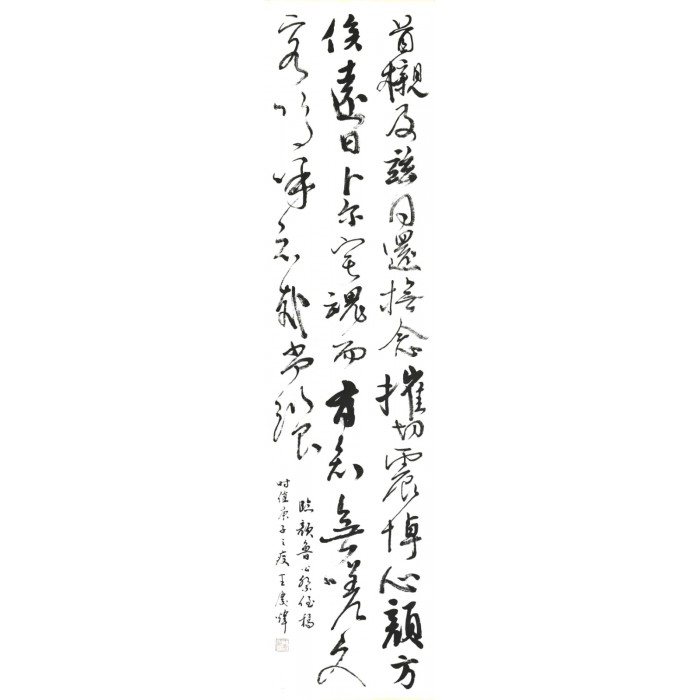 首櫬及兹同還撫念摧切震悼心顏方
俟遠日卜尔宅魂而有知無嗟久
客嗚呼哀哉尚饗
臨顏魯公祭侄稿
时值庚子之 王